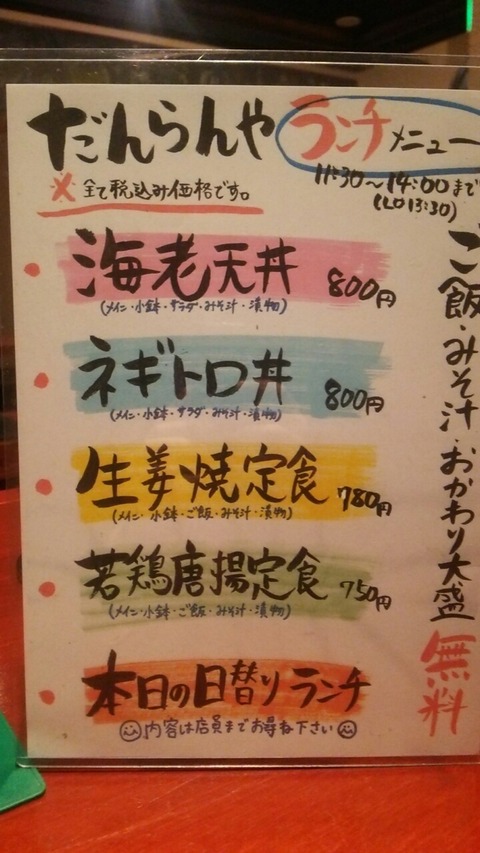 だんらんや ランチメニュー
※全て税込み価格です。
11:30〜14:00まで
(LO 13:30)
海老天丼 800円
(メイン・小鉢・サラダ・みそ汁・漬物)
ネギトロ丼 800円
(メイン・小鉢・サラダ・みそ汁・漬物)
生姜焼定食 780円
(メイン・小鉢・ご飯・みそ汁・漬物)
若鶏唐揚定食 750円
(メイン・小鉢・ご飯・みそ汁・漬物)
本日の日替りランチ
内容は店員までお尋ね下さい
ご飯・みそ汁・おかわり大盛無料